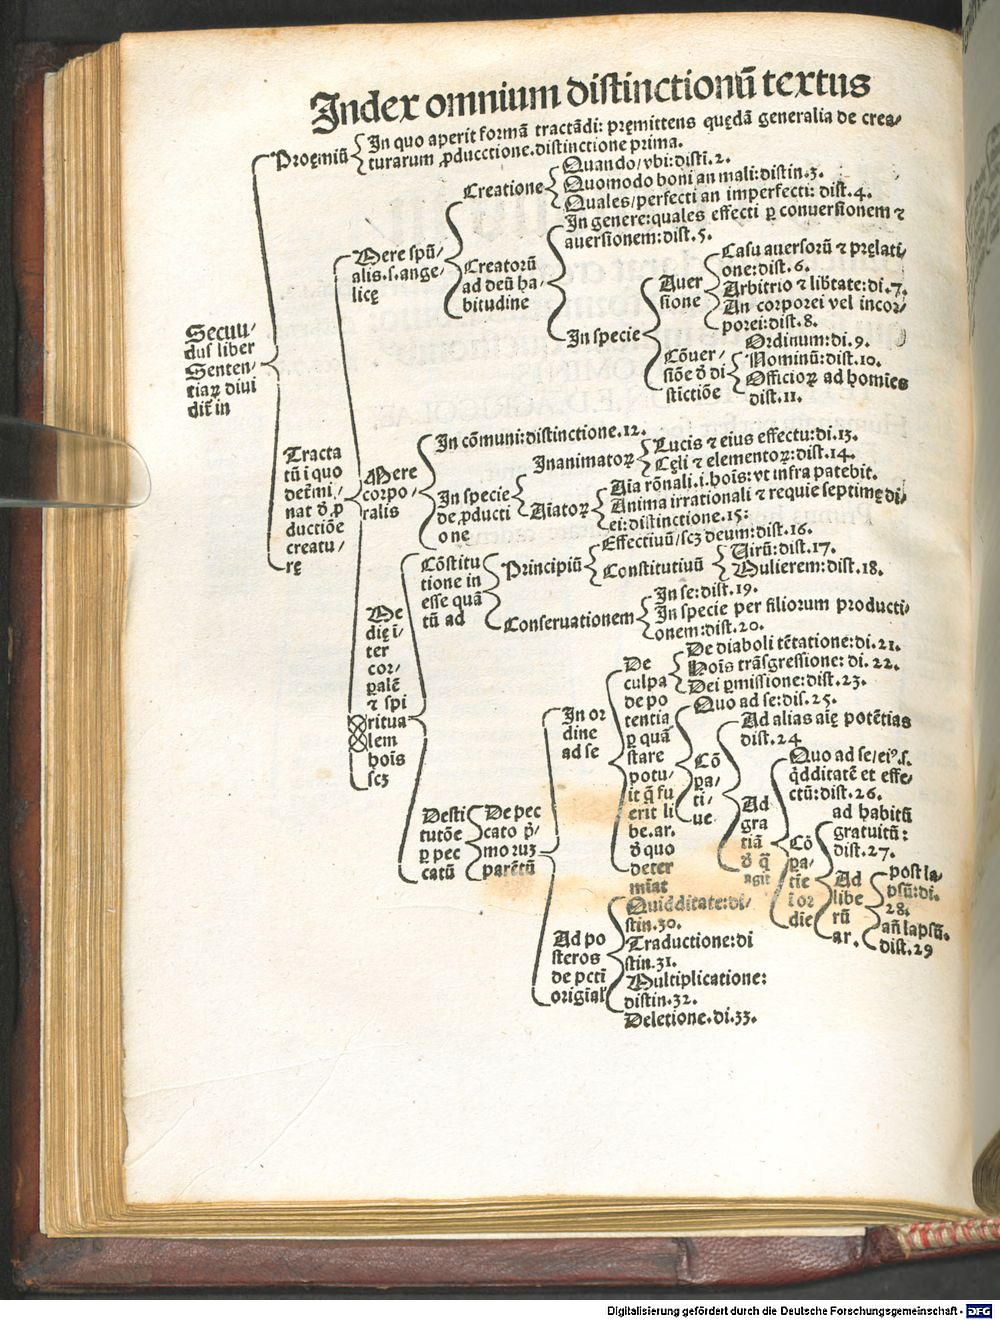 Index omnium distinctionū textus
Proęmiū
In quo aperit formā tractādi: pręmittens quędā generalia de crea-
turarum ꝓducctione.distinctione prima.
Secūu-
dus liber
Senten-
tiaꝝ diui
dit̄ in
Tracta
tū i quo
deṫmi/
nat ō ꝓ
ductiōe
creatu/
rę
Mere spū/
alis.s.ange-
licę
Creatione
Quando/vbi:disti.2.
Quomodo boni an mali:distin.3.
Quales/perfecti an imperfecti: dist.4.
Creatorū
ad deū ha-
bitudine
In genere:quales effecti ꝑ conuersionem ⁊
auersionem:dist.5.
In specie
Auer
sione
Casu auersorū ⁊ pręlati-
one:dist.6.
Arbitrio ⁊ lib̄tate:di.7.
An corporei vel incor-
porei:dist.8.
Cōuer-
siōe ō di
stictiōe
Ordinum:di.9.
Nominū:dist.10.
Officioꝝ ad homies
dist.11.
Mere
corpo/
ralis
In cōmuni:distinctione.12.
In specie
de ꝓducti
one
Inanimatoꝝ
Lucis ⁊ eius effectu:di.13.
Cęli ⁊ elementoꝝ:dist.14.
Aīatoꝝ
Aīa rōnali.i.hoīs:vt infra patebit.
Anima irrationali ⁊ requie septimę di-
ei:distinctione.15:
Me
dię ī-
ter
cor-
ꝑalē
⁊ spi
ritua
lem
hoīs
scꝫ
Cōstitu
tione in
esse quā
tū ad
Principiū
Effectiuū/scꝫ deum:dist.16.
Constitutiuū
Virū:dist.17.
Mulierem:dist.18.
Conseruationem
In se:dist.19.
In specie per filiorum producti-
onem:dist.20.
Desti
tutōe
ꝑ pec
catū
De pec
cato p̄/
mo ruꝫ
parētū
In or
dine
ad se
De
culpa
De diaboli tētatione:di.21.
Hois trāsgressione: di.22.
Dei ꝑmissione:dist.23.
de po
tentia
ꝑ quā
stare
potu/
it q̄ fu
erit li
be.ar.
ō quo
deter
miat
Quo ad se:dis.25.
Cō
pa-
ti-
ue
Ad alias aię potētias
dist.24
Ad
gra
tiā
ō q̄
agit
Quo ad se/eiꝰ.s.
q̇dditatē et effe-
ctū:dist.26.
Cō
pa-
tie
ī or
die
ad habitū
gratuitū:
dist.27.
Ad
libe
rū
ar.
post la-
psū:di.
28.
añ lapsū.
dist.29
Ad po
steros
de pcti
origial'
Quidditate:di-
stin.30.
Traductione:di
stin.31.
Multiplicatione:
distin.32.
Deletione.di.33.
Digitalisierung gefördert durch die Deutsche Forschungsgemeinschaft - DFG